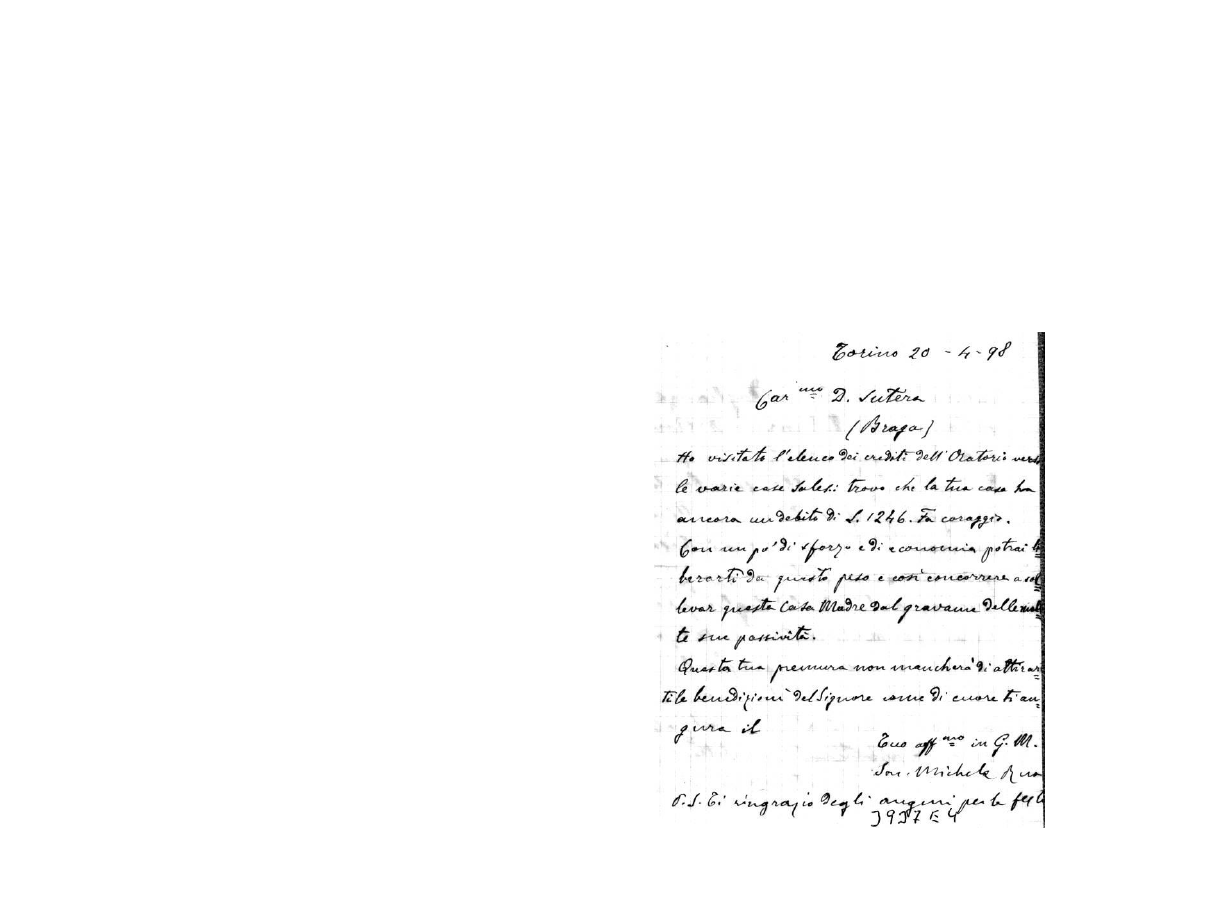 Torino 20 - 4 - 98
Car.mo D. Sutera
(Braga)
Ho visitato l'elenco dei crediti dell'Oratorio vers
le varie case Sales: trovo che la tua casa ha
ancora un debito di L. 1246. Fa coraggio.
Con un po' di sforzo e di economia potrai li
berarti da questo peso e così concorrere a sol
levar questa Casa Madre dal gravame delle mol
te sue passività.
Questa tua premura non mancherà di attirar=
ti le benedizioni del Signore come di cuore ti au=
gura il
Tuo aff.mo in G. M.
Sac. Michele Rua
P.S. Ti ringrazio degli auguri per le feste
3937 E 4